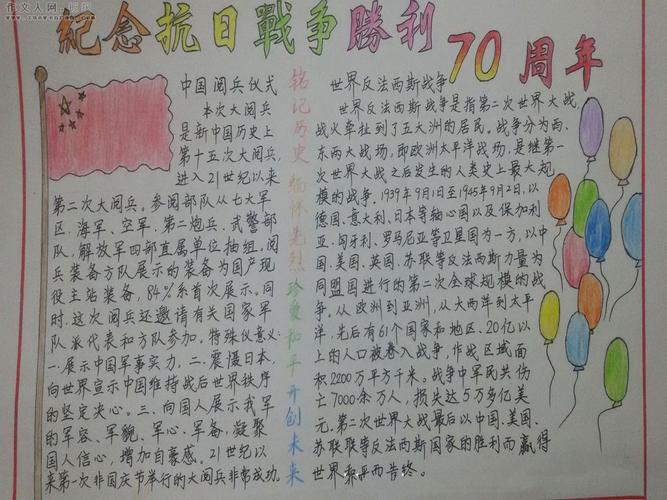 作文人网
纪念抗日戰争勝利70周年
中国阅兵仪式
本次大阅兵
是新中国历史上
第十五次大阅兵,
进入21世纪以来
第二次大阅兵。参阅部队从七大军
区、海军、空军、第二炮兵、武警部
队、解放军四部直属单位抽组。阅
兵装备方队展示的装备为国产现
役主站装备,84%系首次展示。同
时,这次阅兵还邀请有关国家军
队派代表和方队参加。特殊仪意义:
一.展示中国军事实力,二.震慑日本,
向世界宣示中国维持战后世界秩序
的坚定决心。三、向国人展示我军
的军容、军貌、军心、军备,凝聚
国人信心,增加自豪感。21世纪以
来第一次非国庆节举行的大阅兵非常成功.
铭记历史 缅怀先烈 珍爱和平 开创未来
世界反法西斯战争
世界反法西斯战争是指第二次世界大战,
战火牵扯到了五大洲的居民。战争分为西、
东两大战场,即欧洲太平洋战场,是继第一
次世界大战之后发生的人类史上最大规
模的战争。1939年9月1日至1945年9月2日,以
德国、意大利、日本等轴心国以及保加利
亚、匈牙利、罗马尼亚等卫星国为一方,以中
国、美国、英国、苏联等反法西斯力量为
同盟国进行的第二次全球规模的战
争。从欧洲到亚洲,从大西洋到太平
洋,先后有61个国家和地区、20亿以
上的人口被卷入战争,作战区域面
积2200万平方千米。战争中军民共伤
亡7000余万人,损失达5万多亿美
元.第二次世界大战最后以中国、美国、
苏联联等反法西斯国家的胜利而赢得
世界和平而告终。